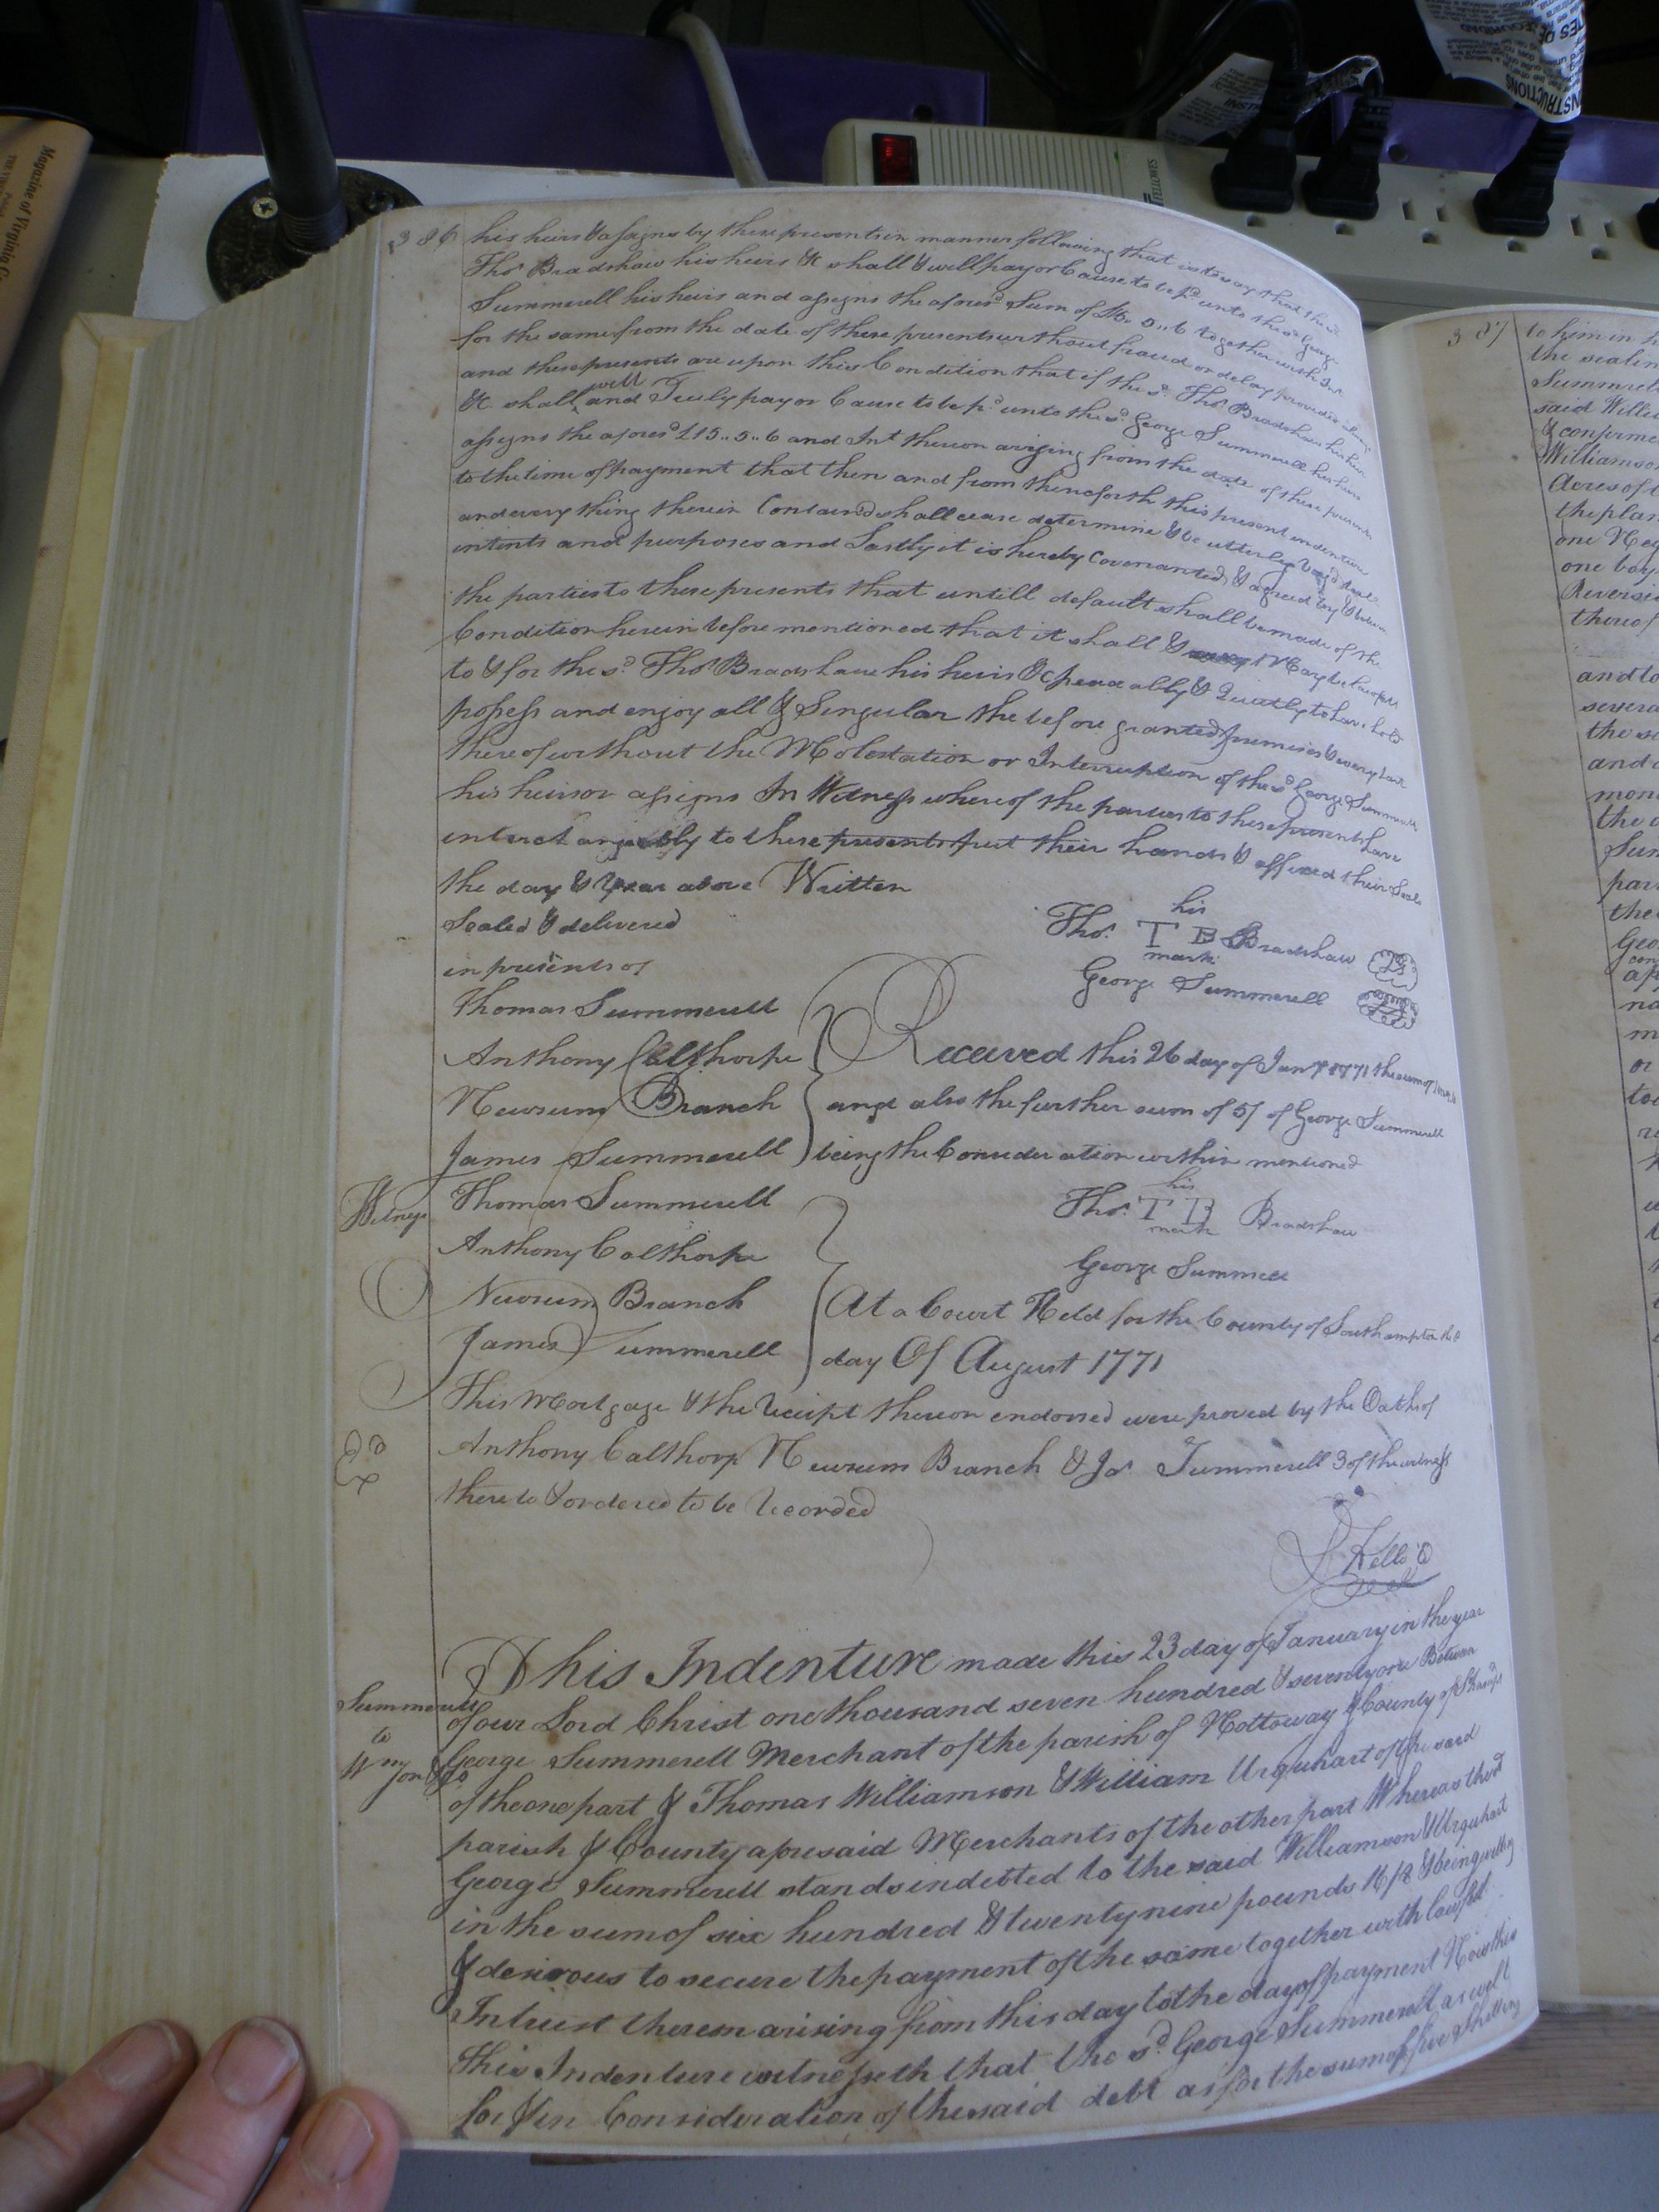 Magazine of Virginia
INSTRUCTIONS
FELLOWES
386
his heirs & assigns by these presents in manner following that is to say that the sd
Thos Bradshaw his heirs &c shall & will pay or Cause to be pd unto the sd George
Summerell his heirs and assigns the aforesd Sum of 15..5..6 together with Int
for the same from the date of these presents without fraud or delay provided always
and these presents are upon this Condition that if the sd Thos Bradshaw his heirs
&c shall will and Truly pay or Cause to be pd unto the sd George Summerell his heirs
assigns the aforesd £15..5..6 and Int thereon arising from the date of these presents
to the time of payment that then and from thenceforth this present indenture
and every thing therein Containd shall cease determine & be utterly void to all
intents and purposes and Lastly it is hereby Covenanted & agreed by & between
the parties to these presents that untill default shall be made of the
Condition herein before mentioned that it shall & May be lawfull
to & for the sd Thos Bradshaw his heirs &c peaceably & Quietly to have hold
possess and enjoy all & Singular the before granted premises & every part
thereof without the Molestation or Interruption of the sd George Summerell
his heirs or assigns In Witness whereof the parties to these presents have
interchangeably to these presents put their hands & affixed their Seals
the day & Year above Written
Sealed & delivered
in presents of
his
Thos. T B Bradshaw
mark
George Summerell
Thomas Summerell
Anthony Calthorpe
Newsum Branch
James Summerell
Received this 26 day of Jany 1771 the sum of
and also the further sum of 5/ of George Summerell
being the Consideration within mentioned
Witness
Thomas Summerell
Anthony Calthorpe
Newsum Branch
James Summerell
his
Thos. T B Bradshaw
mark
George Summell
At a Court Held for the County of Southampton the 8
day Of August 1771
This Mortgage & the Receipt thereon endorsed were proved by the Oaths of
Anthony Calthorp Newsum Branch & Jas Summerell 3 of the witness
thereto & ordered to be Recorded
Exd
Kello
This Indenture made this 23 day of January in the year
Summerell
to
Wmson &c
of our Lord Christ one thousand seven hundred & seventy one Between
George Summerell Merchant of the parish of Nottoway & County of
of the one part & Thomas Williamson & William Urquhart of the said
parish & County aforesaid Merchants of the other part Whereas the sd
George Summerell stands indebted to the said Williamson & Urquhart
in the sum of six hundred & twenty nine pounds 16/8 & being willing
& desirous to secure the payment of the same together with lawful
Intrest thereon arising from this day to the day of payment Now this
this Indenture witnesseth that the sd George Summerell as well
for & in Consideration of the said debt as for the sum of five Shillings
387
to him in
the sealin
Summerel
said Willi
& confirme
Williamson
Acres of
the plan
one Neg
one boy
Reversi
thereof
and to
severa
the sd
and
mon
the
Sum
par
the
Geo